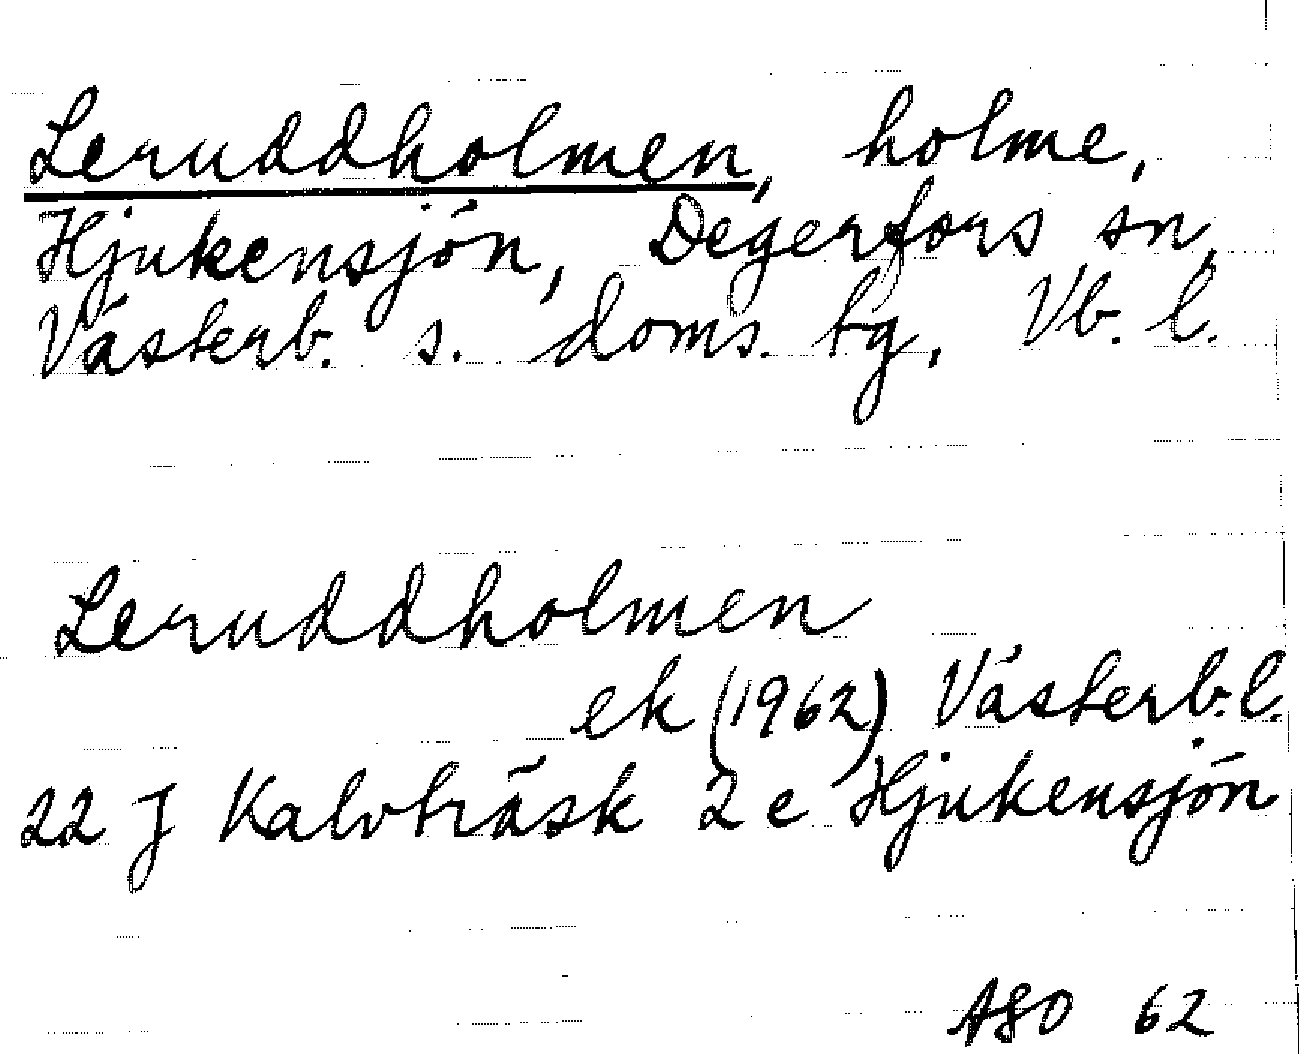 Leruddholmen, holme,
Hjukensjön, Degerfors sn,
Västerb. s. doms. tg, Vb. l.
Leruddholmen
ek (1962) Västerb. l.
22 J Kalvträsk 2 e Hjukensjön
ASO 62